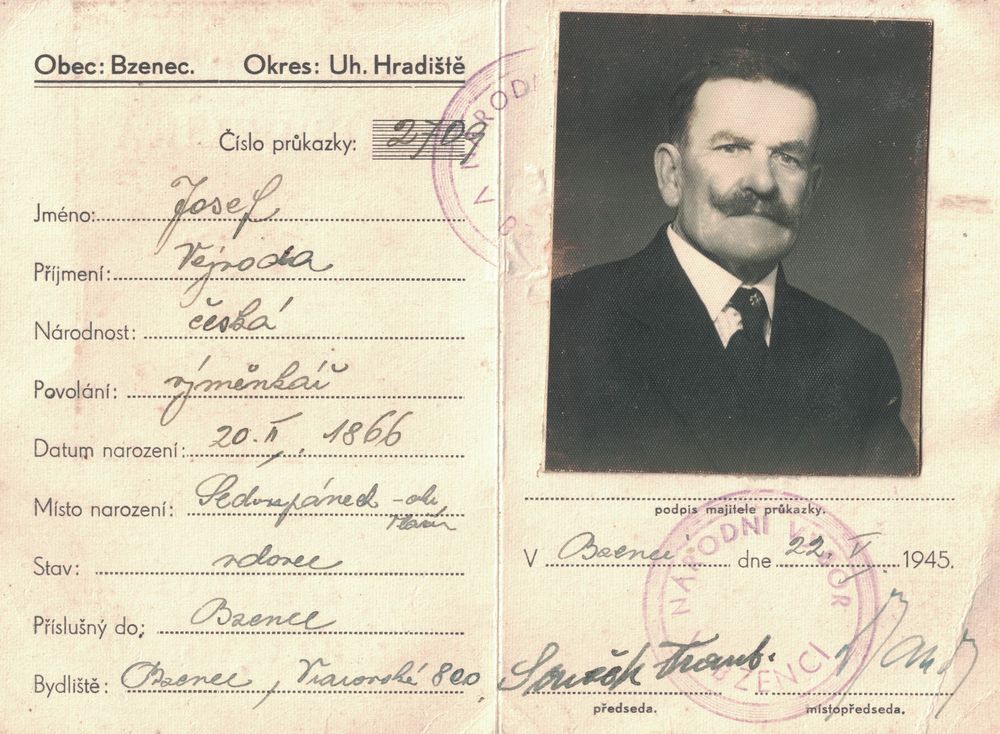 Obec: Bzenec. Okres: Uh. Hradiště
Číslo průkazky: 2709
Jméno: Josef
Příjmení: Vejroda
Národnost: česká
Povolání: výměnkář
Datum narození: 20. II. 1866
Místo narození:
Stav: vdovec
Příslušný do: Bzenec
Bydliště: Bzenec, 800
NÁRODNÍ
V
podpis majitele průkazky.
V Bzenci dne 22. V. 1945.
NÁRODNÍ VÝBOR
V BZENCI
Souček Frant.
předseda. místopředseda.